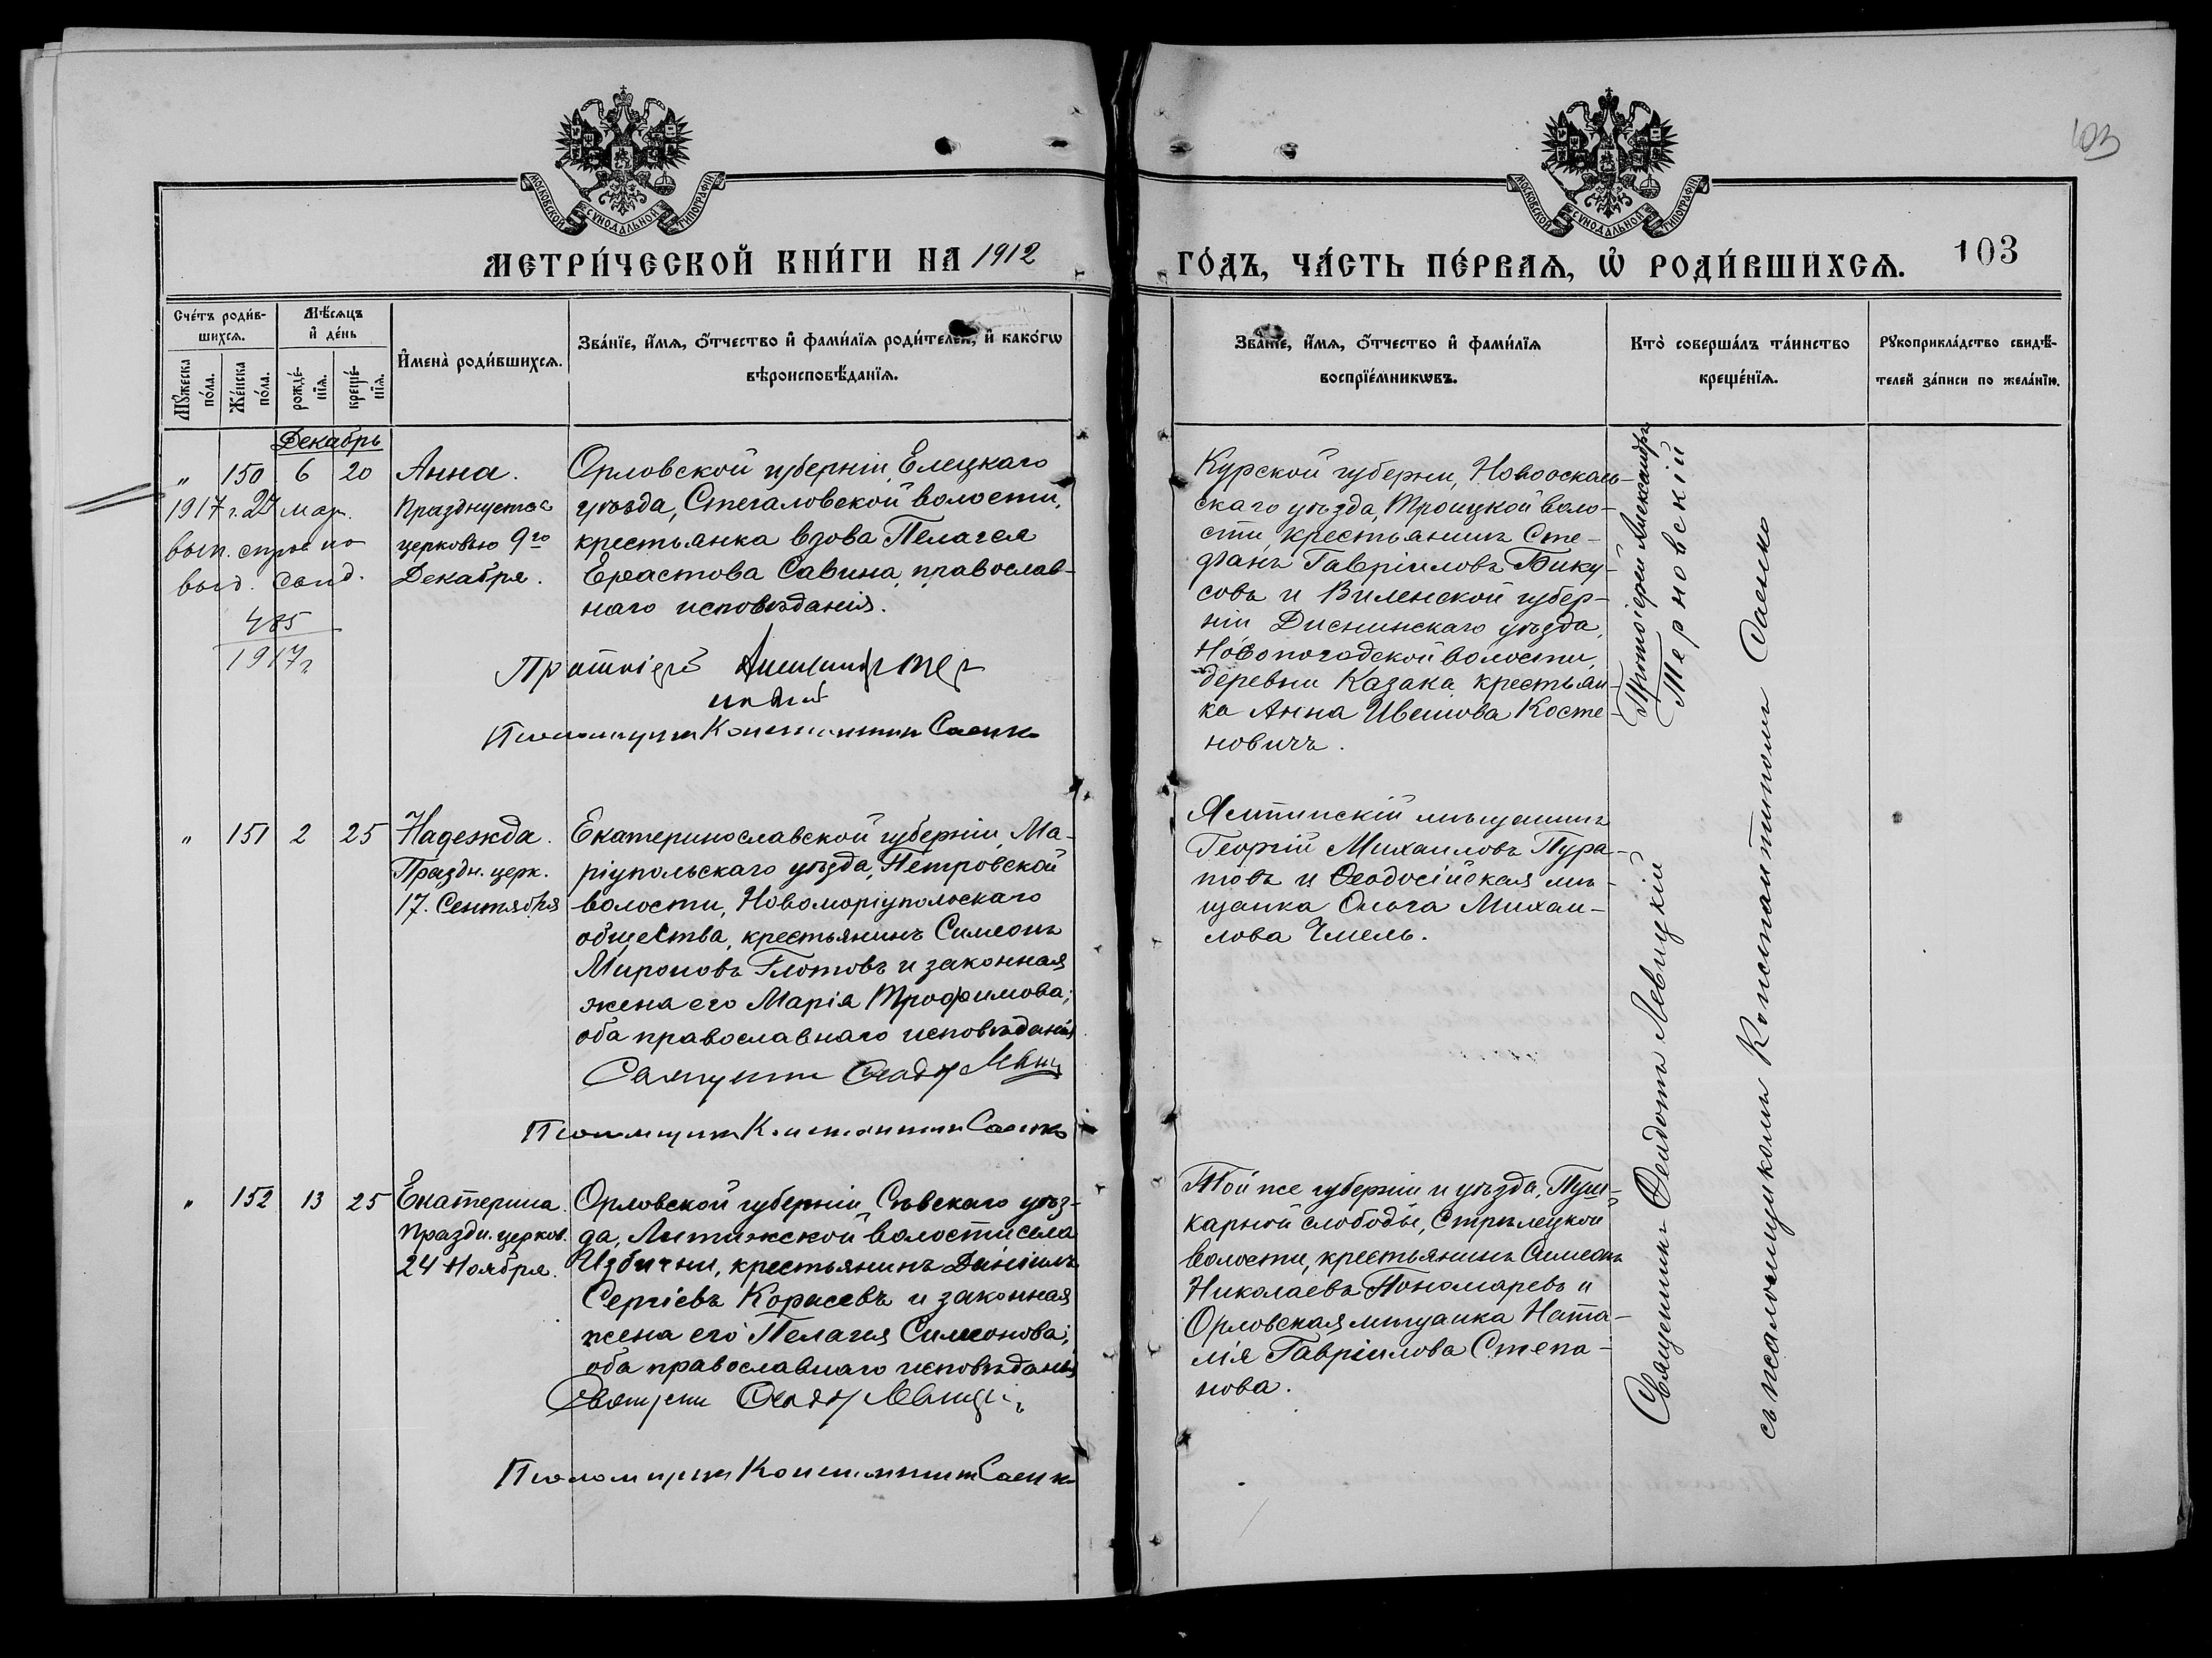 103
МОСКОВСКОЙ СѴНОДАЛЬНОЙ ТИПОГРАФІИ
МОСКОВСКОЙ СѴНОДАЛЬНОЙ ТИПОГРАФІИ
МЕТРИ́ЧЕСКОЙ КНИ́ГИ НА 1912
ГО́ДЪ, ЧА́СТЬ ПЕ́РВАѦ, Ѡ҆ РОДИ́ВШИХСѦ. 103
Сче́тъ роди́в-
шихсѧ.
Мꙋ́жеска по́ла.
Же́нска по́ла.
Мѣ́сѧцъ
и҆ де́нь
рожде́-
нїѧ.
креще́-
нїѧ.
И҆мена̀ роди́вшихсѧ.
Зва́нїе, и҆́мѧ, ѻ҆́тчество и҆ фами́лїѧ роди́телей, и҆ како́гѡ
вѣроисповѣ́данїѧ.
Зва́нїе, и҆́мѧ, ѻ҆́тчество и҆ фами́лїѧ
воспрїе́мникѡвъ.
Кто̀ соверша́лъ та́инство
креще́нїѧ.
Рꙋкоприкла́дство свидѣ́-
телей за́писи по жела́нїю.
Декабрь
" 150 6 20
1917 г. 27 мар.
вып. спр.
выд. свид.
485
1917 г.
Анна.
Празднуется
церковью 9го
Декабря.
Орловской губерніи, Елецкаго
уѣзда, Стегаловской волости,
крестьянка вдова Пелагея
Ерастова Савина, православ-
наго исповѣданія.
Протоіерей
Псаломщикъ Константин Саенко
Курской губерніи, Новооскаль-
скаго уѣзда, Троицкой воло-
сти, крестьянинъ Сте-
фанъ Гавріиловъ Бику-
совъ и Виленской губер-
ніи Диснинскаго уѣзда,
Новопогодской волости,
деревни Казака крестьян-
ка Анна Ивамова Косте-
новичъ.
Протоіерей Александръ
Терновскій
" 151 2 25
Надежда.
Праздн. церк.
17. Сентября
Екатеринославской губерніи, Ма-
ріупольскаго уѣзда, Петровской
волости, Новомаріупольскаго
общества, крестьянинъ Симеонъ
Мироновъ Глотовъ и законная
жена его Марія Трофимова;
оба православнаго исповѣданія
Священникъ
Псаломщикъ Константин Саенко
Ялтинскій мѣщанинъ
Георгій Михаиловъ Пура-
товъ и Ѳеодосійская мѣ-
щанка Ольга Михаи-
лова Чмель.
" 152 13 25
Екатерина.
Праздн. церков.
24 Ноября.
Орловской губерніи, Сѣвскаго уѣз-
да, Литижской волости села
Избични, крестьянинъ Даніилъ
Сергіевъ Корисевъ и законная
жена его Пелагея Симеонова;
оба православнаго исповѣданія
Священникъ
Псаломщикъ Константин Саенко
Той же губерніи и уѣзда, Пуш-
карной слободы, Стрѣлецкой
волости, крестьянинъ Симеонъ
Николаевъ Пономаревъ и
Орловская мѣщанка Ната-
лія Гавріилова Степа-
нова.
Священникъ Ѳеодотъ Левицкій
съ псаломщикомъ Константиномъ Саенко